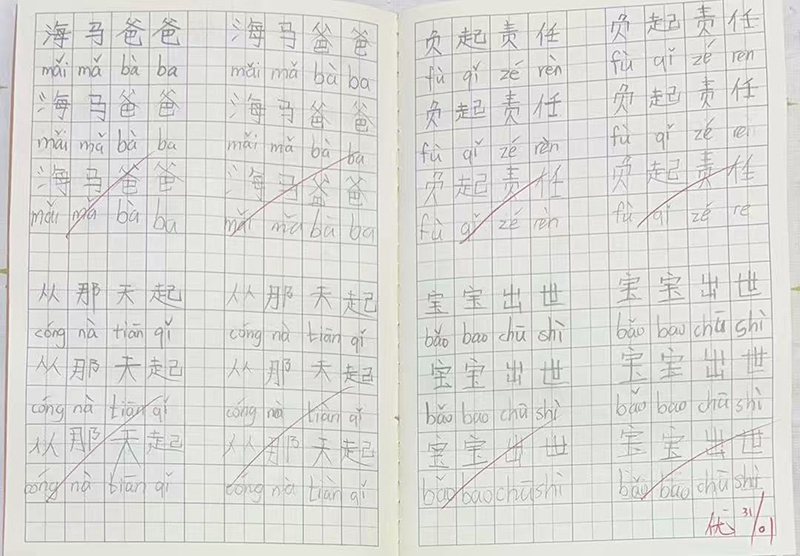 海马爸爸
mǎi mǎ bà ba
海马爸爸
mǎi mǎ bà ba
海马爸爸
mǎi mǎ bà ba
海马爸爸
mǎi mǎ bà ba
海马爸爸
mǎi mǎ bà ba
海马爸爸
mǎi mǎ bà ba
从那天起
cóng nà tiān qǐ
从那天起
cóng nà tiān qǐ
从那天起
cóng nà tiān qǐ
从那天起
cóng nà tiān qǐ
从那天起
cóng nà tiān qǐ
从那天起
cóng nà tiān qǐ
负起责任
fù qǐ zé rèn
负起责任
fù qǐ zé rèn
负起责任
fù qǐ zé rèn
负起责任
fù qǐ zé rèn
负起责任
fù qǐ zé ren
负起责任
fù qǐ zé re
宝宝出世
bǎo bao chū shì
宝宝出世
bǎo bao chū shì
宝宝出世
bǎo bao chū shì
宝宝出世
bǎo bao chū shì
宝宝出世
bǎo bao chū shì
宝宝出世
bǎo bao chū shì
优 31/01